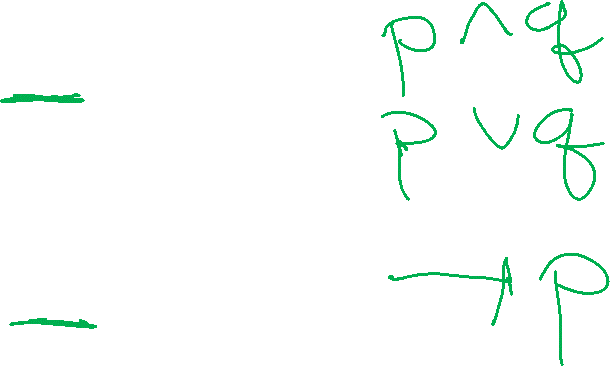 p ∧ q
p ∨ q
¬ p